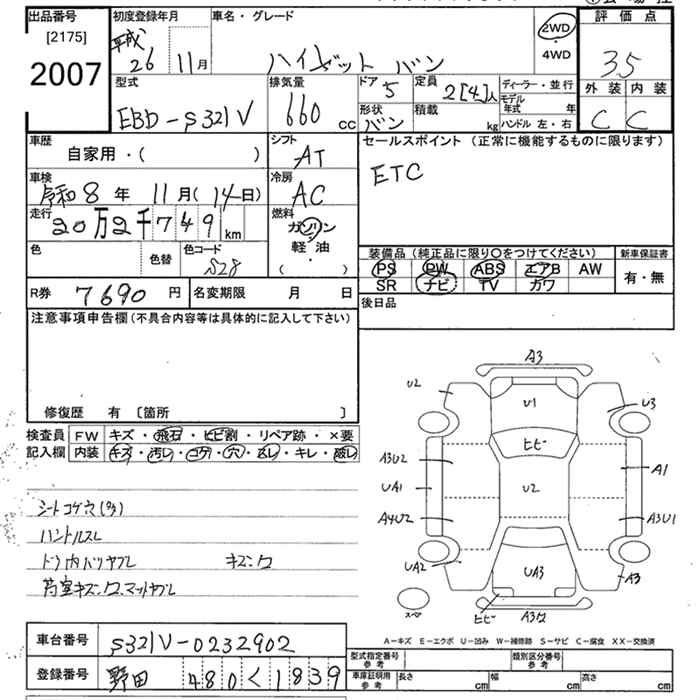 出品番号
[2175]
2007
初度登録年月
平成 26 11月
車名・グレード
ハイゼット バン
2WD
・
4WD
評価点
3.5
外装 内装
C C
型式
EBD-S321V
排気量
660 cc
ドア 5
定員 2[4]人
形状 バン
積載 kg
ディーラー・並行
モデル年式 年
ハンドル 左・右
車歴
自家用・( )
シフト
AT
セールスポイント (正常に機能するものに限ります)
ETC
車検
令和8年 11月(14日)
冷房
AC
走行
20万2千749km
燃料
ガソリン
軽・油
( )
色
色替
色コード
S28
装備品 (純正品に限り○をつけてください)
PS PW ABS エアB AW
SR ナビ TV カワ
新車保証書
有・無
R券 7690円
名変期限 月 日
後日品
注意事項申告欄(不具合内容等は具体的に記入して下さい)
修復歴 有 〔箇所 〕
検査員
記入欄
FW キズ・飛石・ヒビ割・リペア跡・×要
内装 キズ・汚レ・コゲ・穴・スレ・キレ・破レ
シートコゲ穴(多)
ハンドルスレ
ドア内バリヤブレ キズ
荷室キズ マットヤブレ
A3
U2
U1
U3
ヒビ
A3U2
A1
UA1
U2
A4U2
A3U1
UA2
UA3
A3
スペア
ヒビ
A3
A-キズ E-エクボ U-凹み W-補修跡 S-サビ C-腐食 XX-交換済
車台番号 S321V-0232902
登録番号 野田 480 く 1839
型式指定番号
参考
類別区分番号
参考
車庫証明用
参考
長さ cm
幅 cm
高さ cm